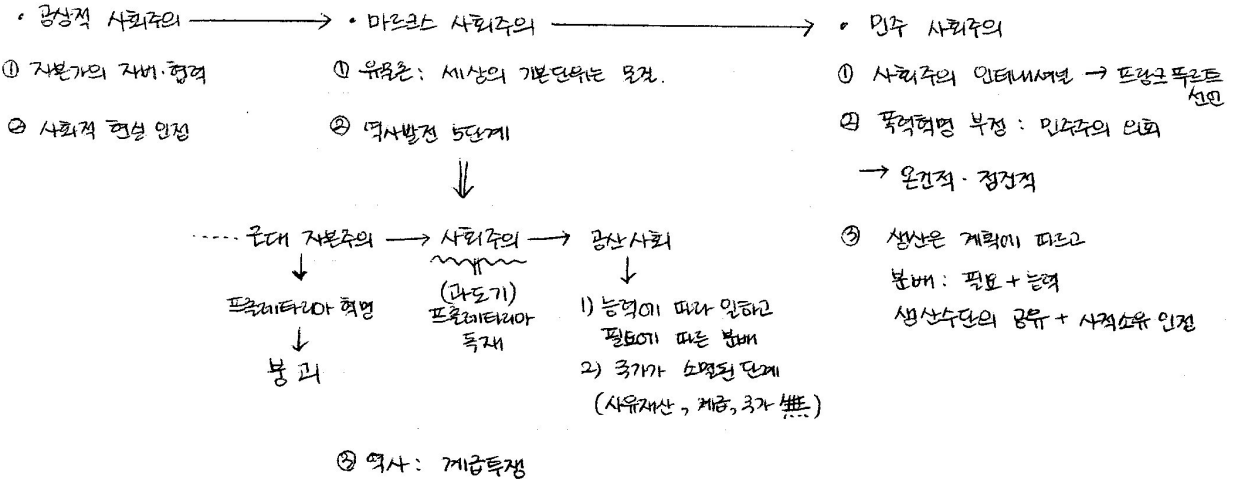 · 공상적 사회주의 → · 마르크스 사회주의 → · 민주 사회주의
① 자본가의 자비·협력
② 사회적 현실 인정
① 유물론: 세상의 기본단위는 물질.
② 역사발전 5단계
⇓
····· 근대 자본주의 → 사회주의 → 공산사회
↓
프롤레타리아 혁명
↓
붕괴
(과도기)
프롤레타리아
독재
↓
1) 능력에 따라 일하고
필요에 따른 분배
2) 국가가 소멸된 단계
(사유재산, 계급, 국가 無)
③ 역사: 계급투쟁
① 사회주의 인터내셔널 → 프랑크푸르트
선언
② 폭력혁명 부정: 민주주의 의회
→ 온건적·점진적
③ 생산은 계획에 따르고
분배: 필요+능력
생산수단의 공유+사적소유 인정